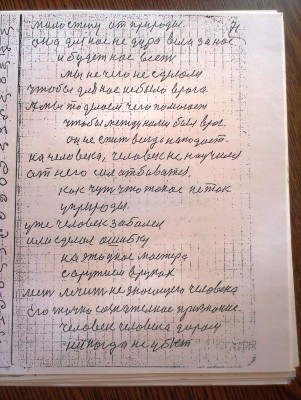 милостыни от природы. 71
она для нас не дура вела за нас
и будет нас вести
мы ничего не сделали
чтобы для нас не было врага.
А мы то делаем чего помогает
чтобы между нами был враг.
он не спит всегда нападает
на человека, человек не научился
от него отбиватся,
как чуть что такое не так
у природы.
уже человек заболел
или сделал ошибку
на это уже мастера
с оружием в руках
лезет лечит не знающего человека
Его точно сознательное признание.
человек человека даром
никогда не убьет